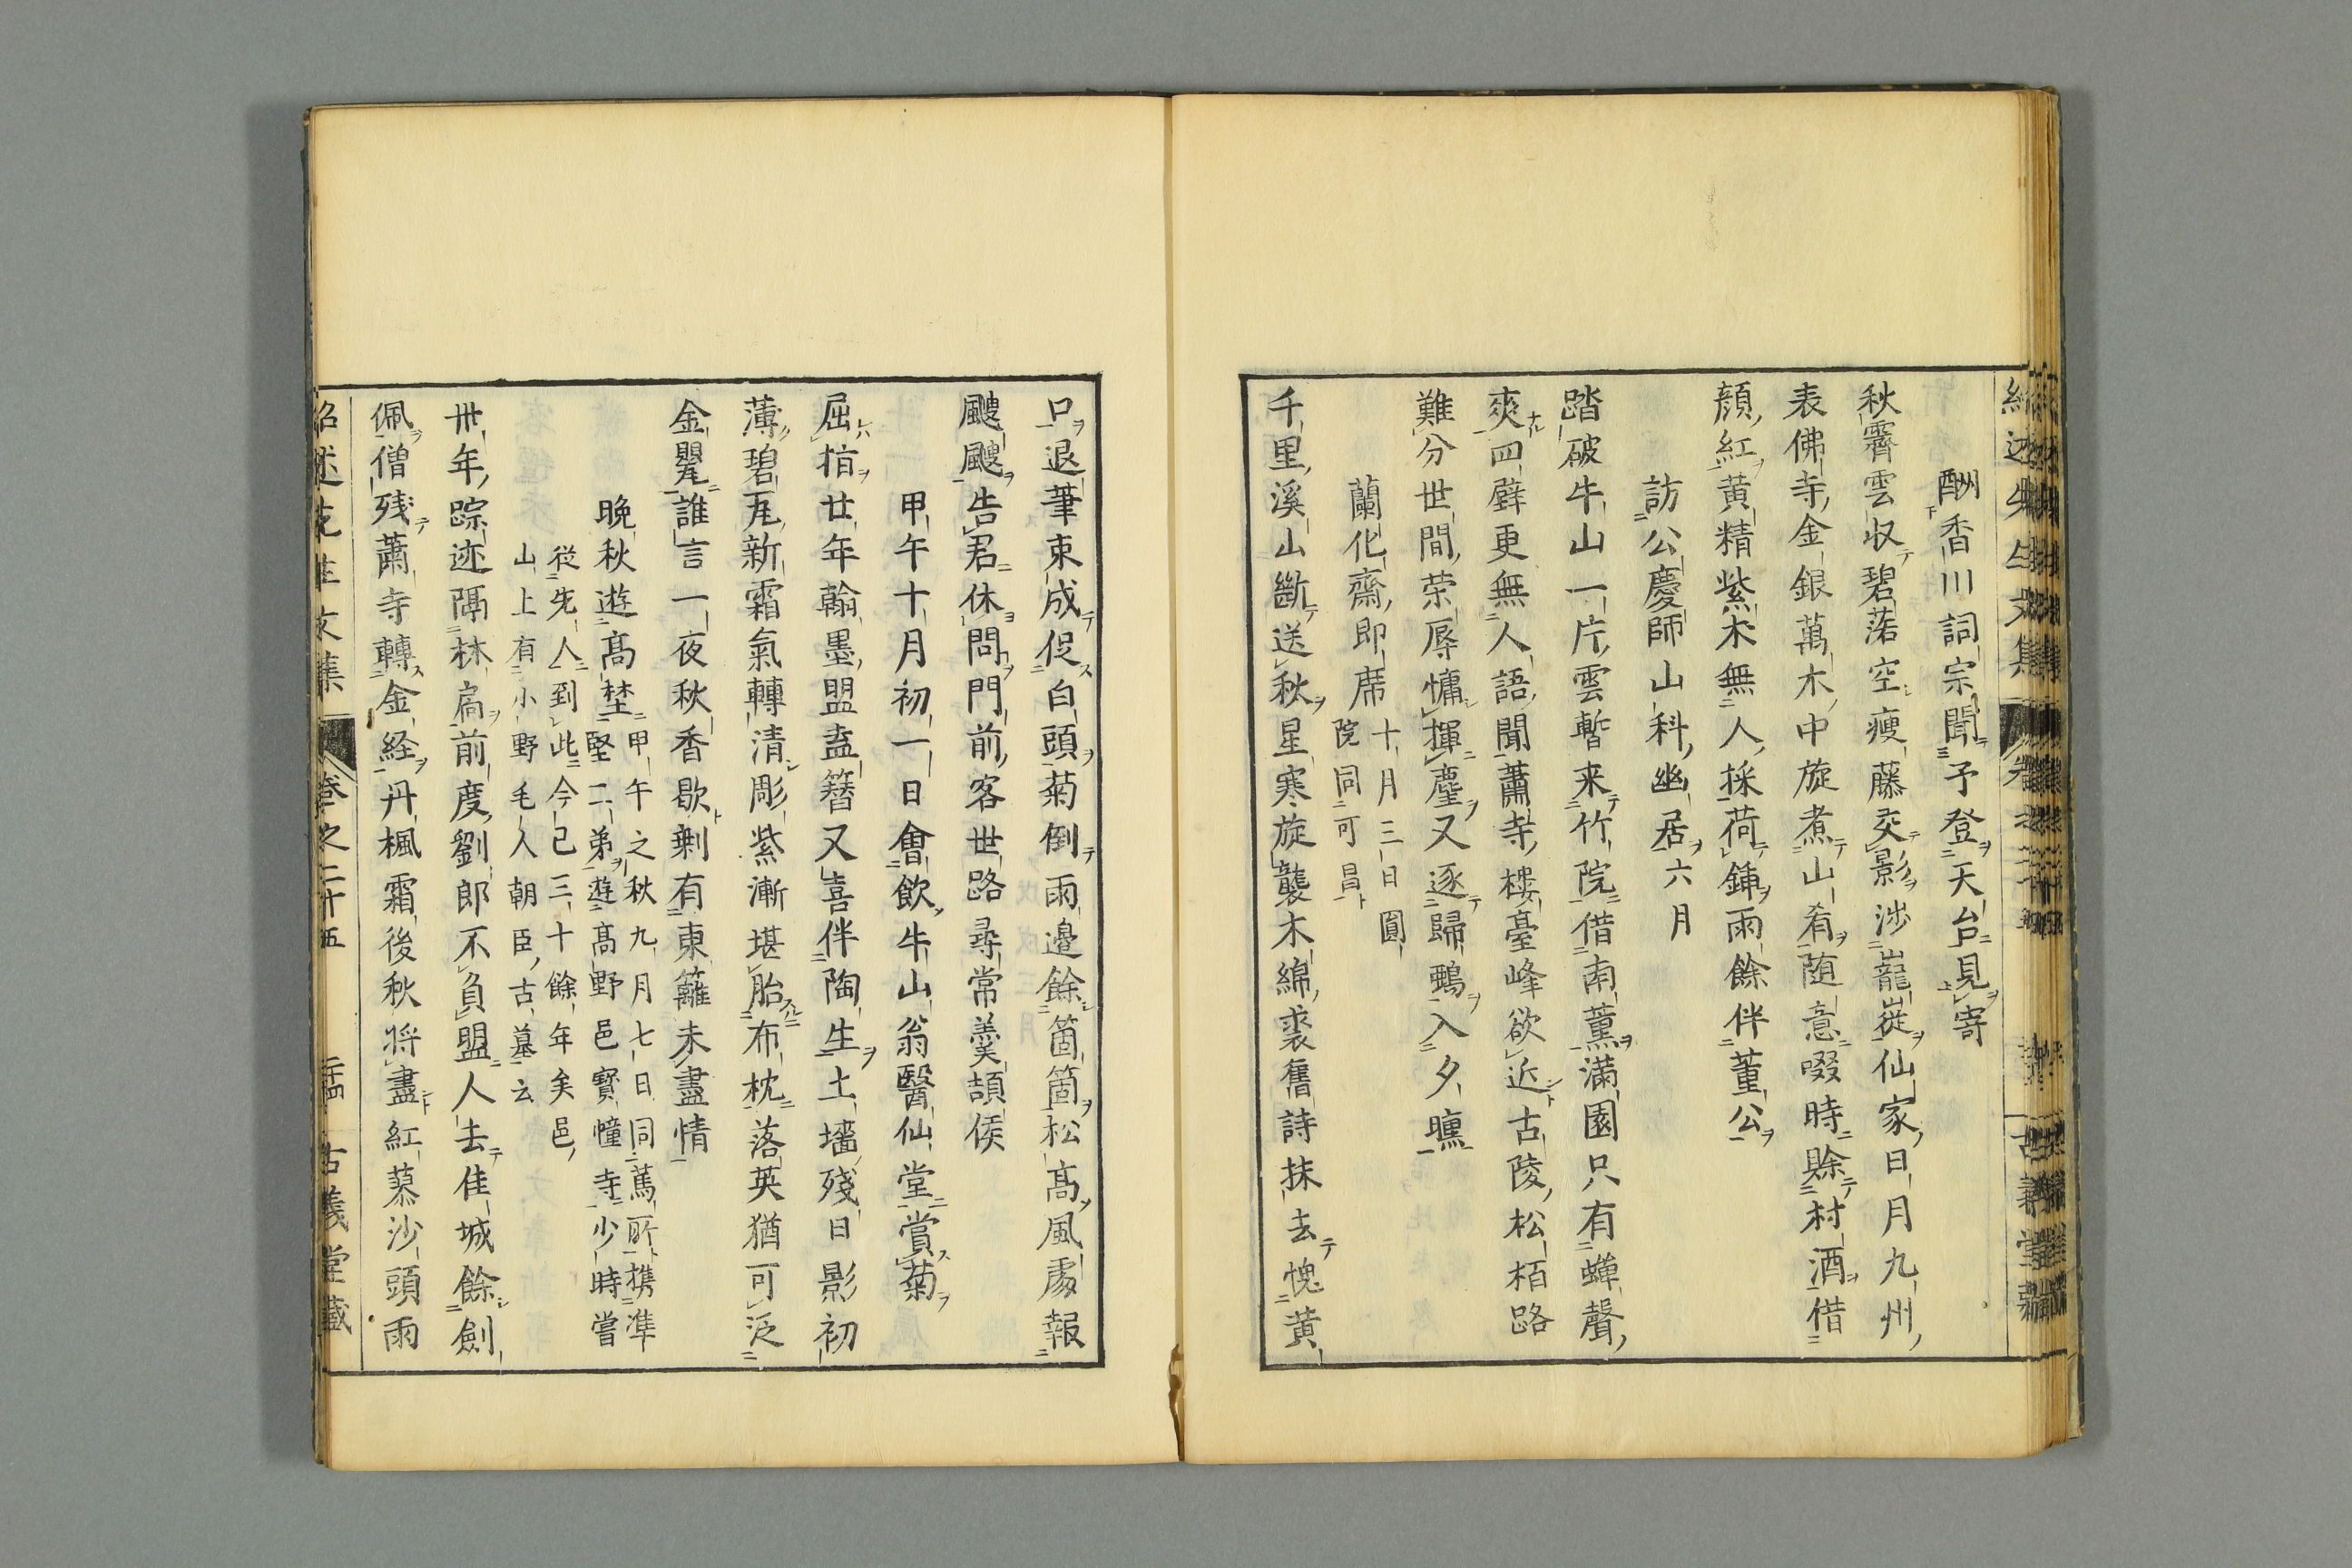 酬香川詞宗聞予登天台見寄
秋霽雲収碧落空瘦藤交影渉巃嵸仙家日月九州
表佛寺金銀萬木中旋煮山肴随意啜時賖村酒借
顔紅黄精紫朮無人採荷鍤雨餘伴董公
訪公慶師山科幽居六月
踏破牛山一片雲暫来竹院借南薫滿園只有蟬聲
爽四壁更無人語聞蕭寺樓臺峰欲近古陵松栢路
難分世間荣辱慵揮麈又逐歸鵶入夕曛
蘭化齋即席十月三日圓
院同可昌
千里溪山斷送秋星寒旋襲木綿裘舊詩抹去愧黄
口退筆束成促白頭菊倒雨邊餘箇箇松髙風處報
颼颼告君休問門前客世路尋常羹頡侯
甲午十月初一日會飲牛山翁醫仙堂賞菊
屈指廿年翰墨盟盍簪又喜伴陶生土墻殘日影初
薄碧瓦新霜氣轉清彫紫漸堪胎布枕落英猶可泛
金觥誰言一夜秋香歇剰有東籬未盡情
晩秋遊髙埜甲午之秋九月七日同蔦所携準
堅二弟遊髙野邑寳幢寺少時嘗
従先人到此今已三十餘年矣邑
山上有小野毛人朝臣古墓云
卅年踪迹隔林扃前度劉郎不負盟人去佳城餘劍
佩僧残蕭寺轉金経丹楓霜後秋将盡紅蓼沙頭雨
紹述先生文集 卷之二十五 二十四 古義堂藏